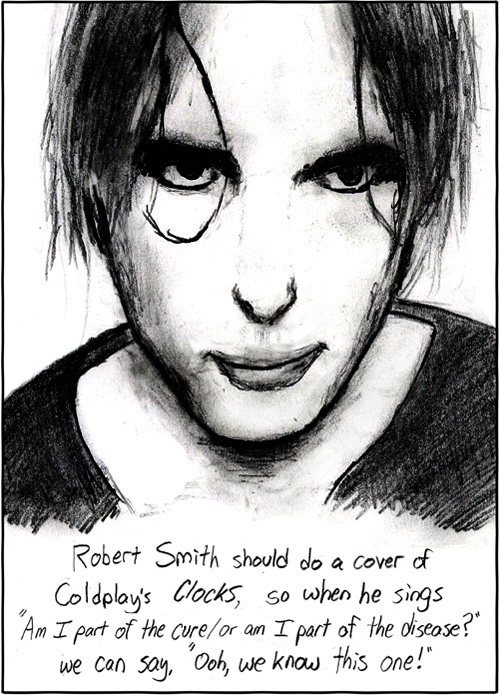 Robert Smith should do a cover of
Coldplay's Clocks, so when he sings
"Am I part of the cure/or am I part of the disease?"
we can say, "Ooh, we know this one!"